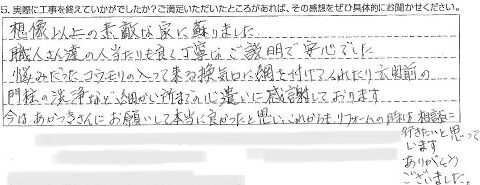 5. 実際に工事を終えていかがでしたか？ご満足いただいたところがあれば、その感想をぜひ具体的にお聞かせください。
想像以上の素敵な家に蘇りました。
職人さん達の人当たりも良く丁寧なご説明で安心でした
悩みだったコウモリの入って来る換気口に網を付けてくれたり玄関前の
門柱の洗浄など細かい所までの心遣いに感謝しております
今はあかつきさんにお願いして本当に良かったと思い、これからもリフォームの時は相談に
行きたいと思って
います
ありがとう
ございました。